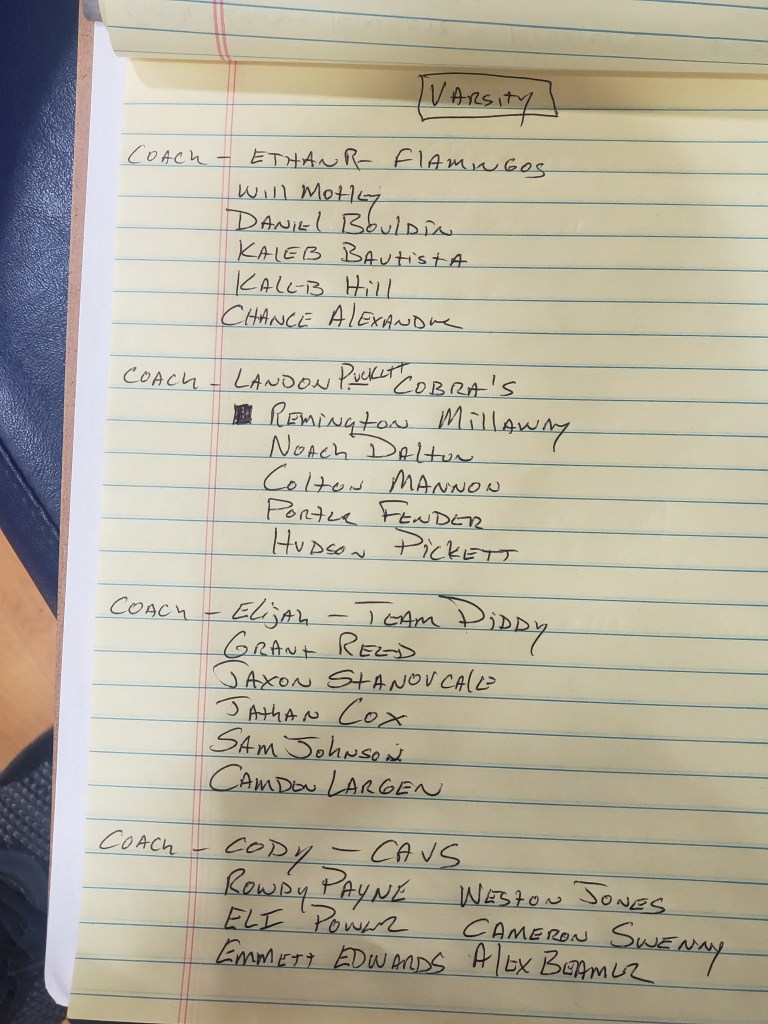 VARSITY
COACH - ETHAN R- FLAMINGOS
Will Motley
DANIEL BOULDIN
KALEB BAUTISTA
KALEB Hill
CHANCE ALEXANDER
COACH - LANDON PUCKETT COBRA'S
REMINGTON MILLAWAY
NOAH DALTON
COLTON MANNON
PORTER FENDER
HUDSON PICKETT
COACH - ELIJAH - TEAM DIDDY
GRANT REED
JAXON STANOVCALE
JATHAN COX
SAM JOHNSON
CAMDON LARGEN
COACH - CODY - CAVS
ROWDY PAYNE WESTON JONES
ELI POWER CAMERON SWENNY
EMMETT EDWARDS ALEX BEAMER